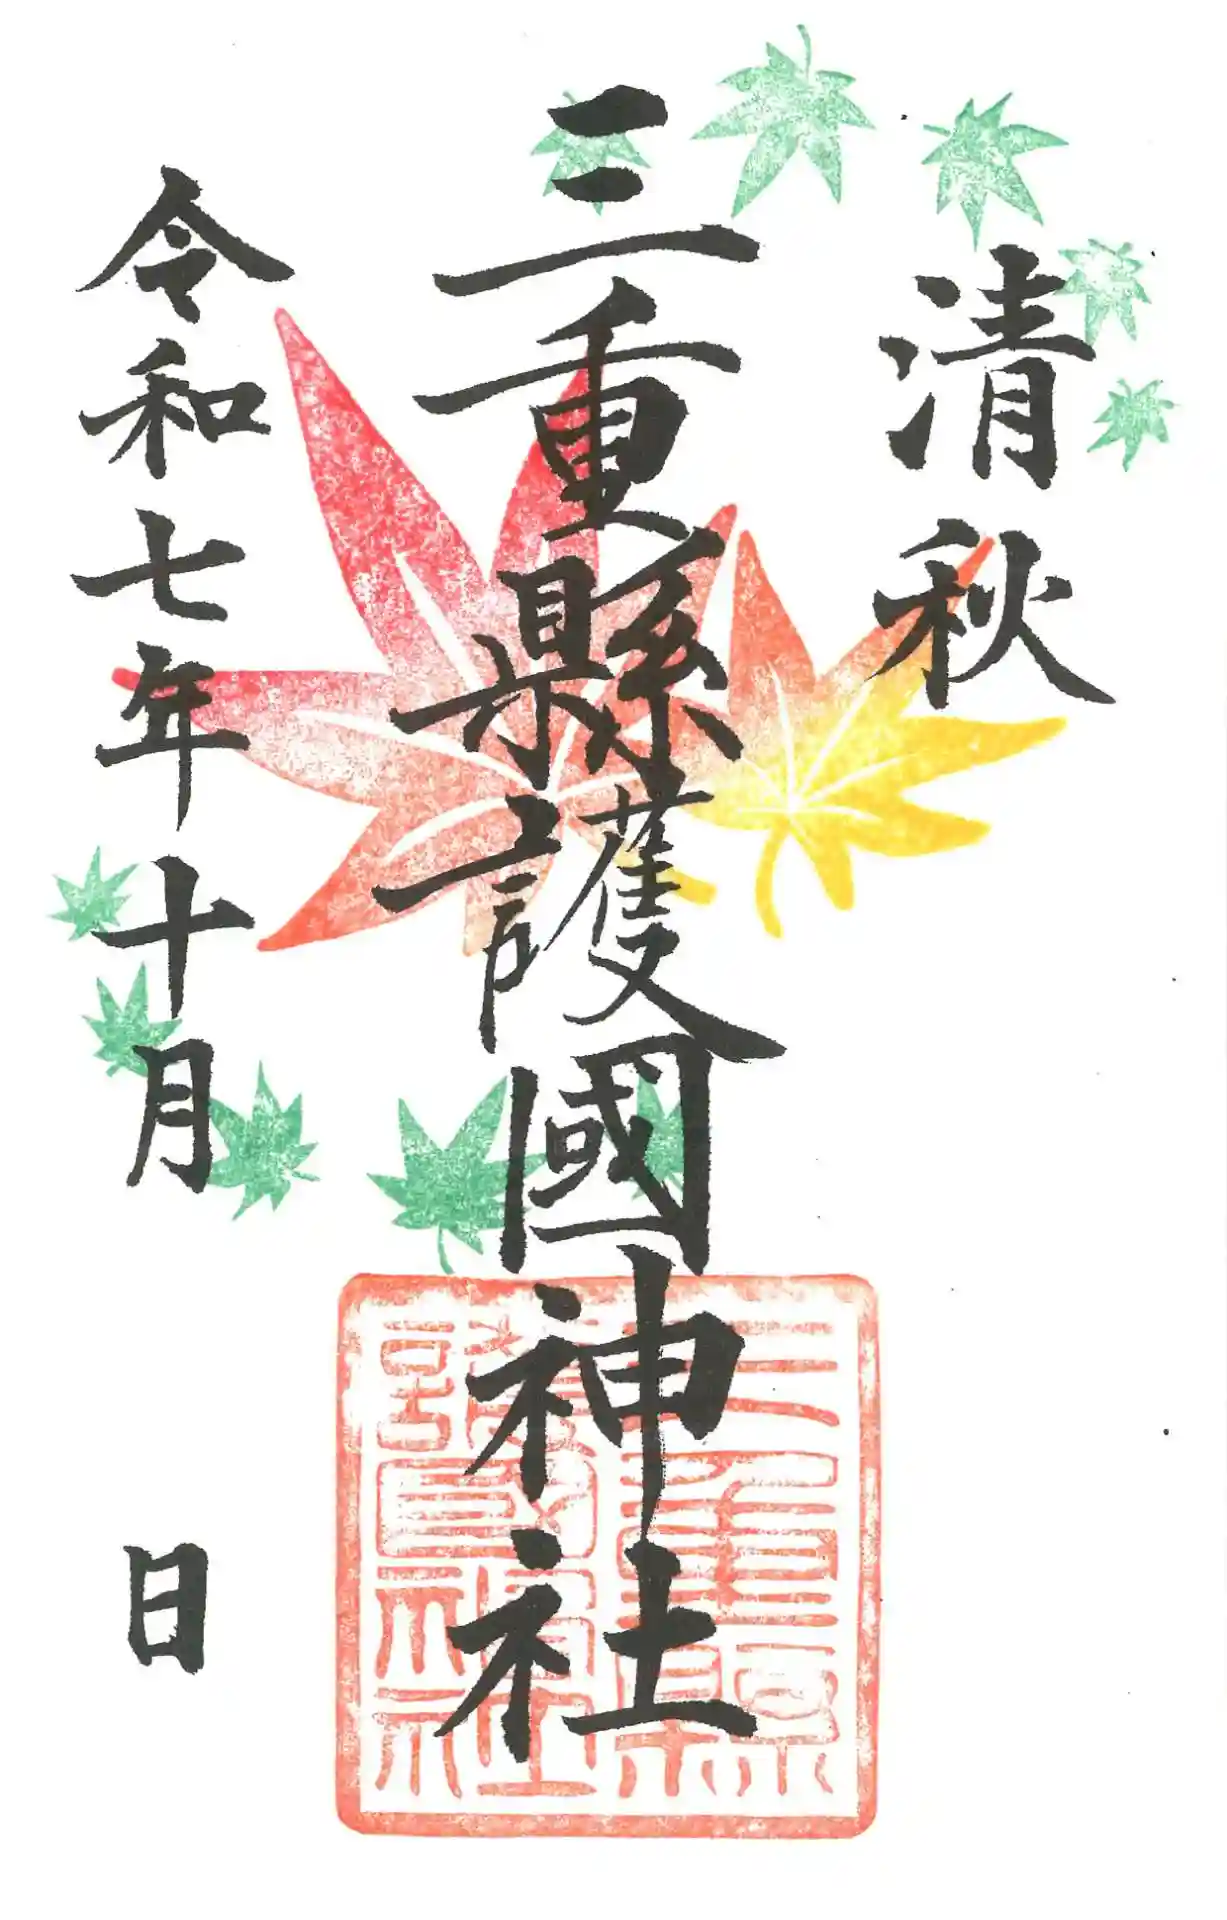 清秋
三重縣護國神社
令和七年十月 日
三重縣
護國神社